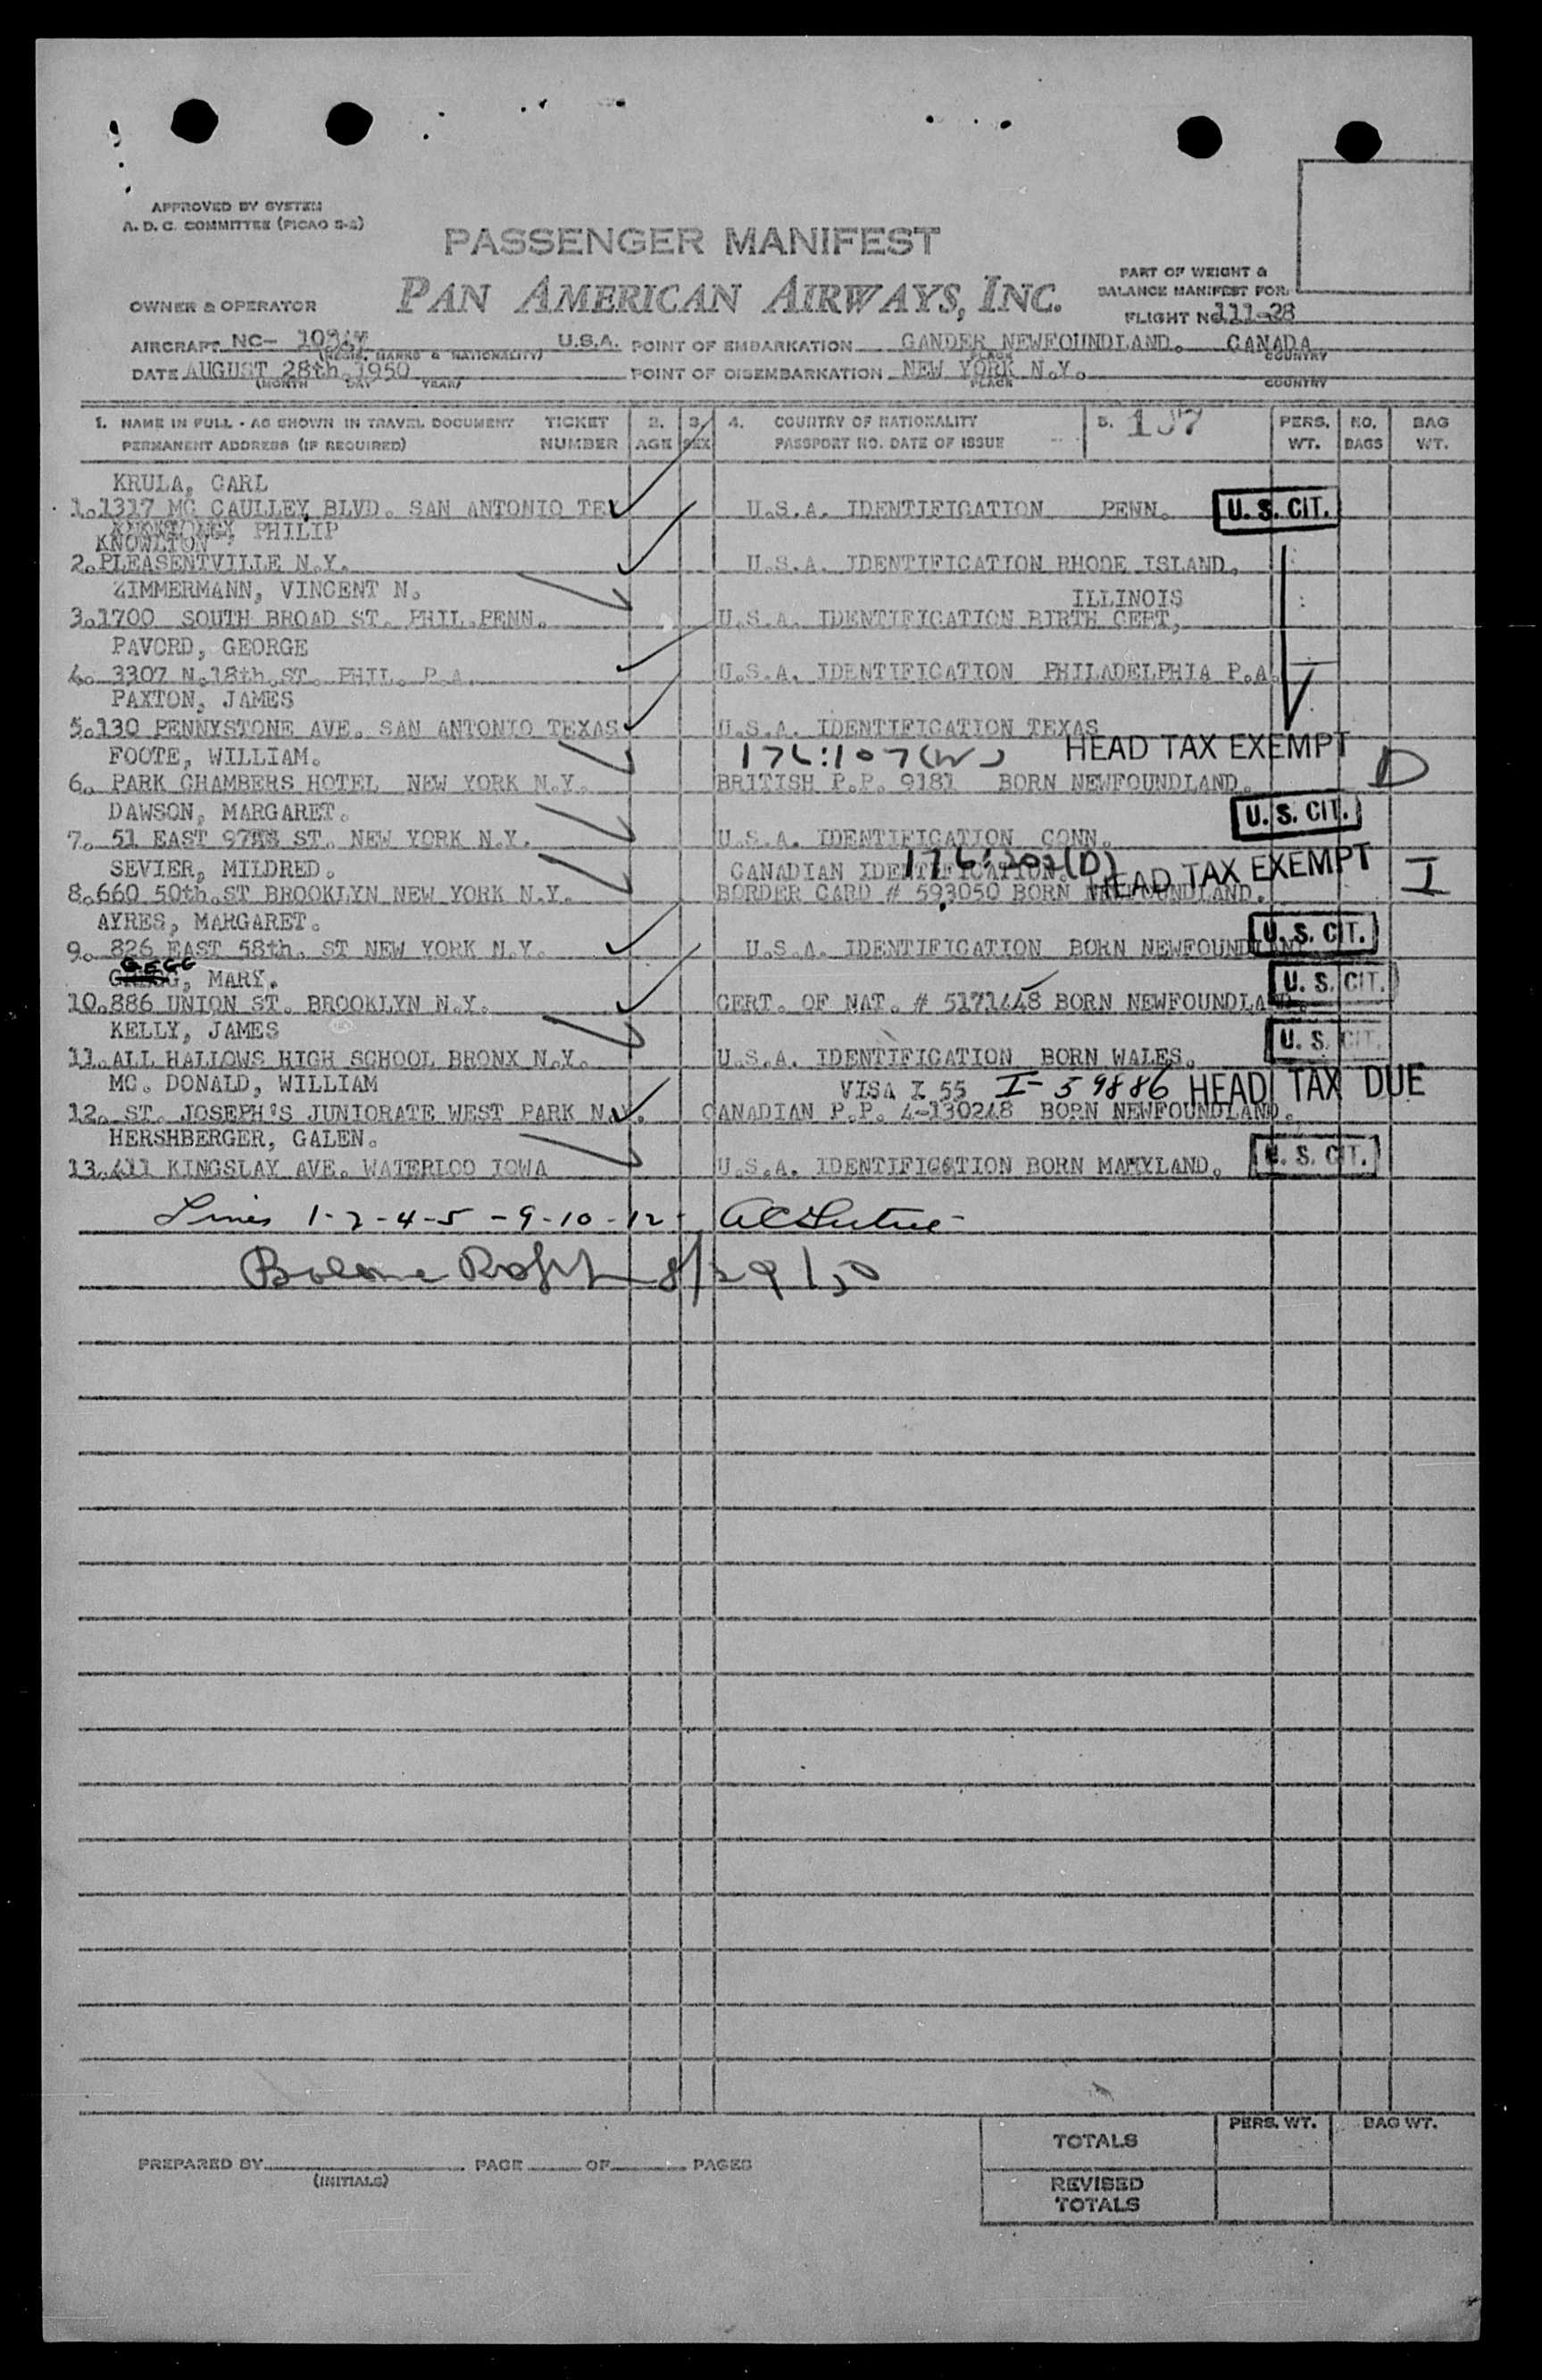 APPROVED BY SYSTEM
A. D. C. COMMITTEE (PICAO S-2)
PASSENGER MANIFEST
PAN AMERICAN AIRWAYS, INC.
PART OF WEIGHT &
BALANCE MANIFEST FOR:
FLIGHT NO. 111-28
OWNER & OPERATOR
AIRCRAFT NC- U.S.A. POINT OF EMBARKATION GANDER NEWFOUNDLAND. CANADA
(REGIS. MARKS & NATIONALITY) PLACE COUNTRY
DATE AUGUST 28th 1950 POINT OF DISEMBARKATION NEW YORK N.Y.
(MONTH DAY YEAR) PLACE COUNTRY
1. NAME IN FULL - AS SHOWN IN TRAVEL DOCUMENT TICKET 2. 3. 4. COUNTRY OF NATIONALITY 5. 107 PERS. NO. BAG
PERMANENT ADDRESS (IF REQUIRED) NUMBER AGE SEX PASSPORT NO. DATE OF ISSUE WT. BAGS WT.
KRULA, CARL
1. 1317 MC CAULLEY BLVD. SAN ANTONIO TEX U.S.A. IDENTIFICATION PENN. U.S. CIT.
PHILIP
KNOWLTON
2. PLEASENTVILLE N.Y. U.S.A. IDENTIFICATION RHODE ISLAND.
ZIMMERMANN, VINCENT N. ILLINOIS
3. 1700 SOUTH BROAD ST. PHIL.PENN. U.S.A. IDENTIFICATION BIRTH CERT,
PAVORD, GEORGE
4. 3307 N.18th.ST. PHIL. P.A. U.S.A. IDENTIFICATION PHILADELPHIA P.A.
PAXTON, JAMES
5. 130 PENNYSTONE AVE. SAN ANTONIO TEXAS U.S.A. IDENTIFICATION TEXAS
FOOTE, WILLIAM. 176:107(W) HEAD TAX EXEMPT D
6. PARK CHAMBERS HOTEL NEW YORK N.Y. BRITISH P.P. 9181 BORN NEWFOUNDLAND.
DAWSON, MARGARET. U.S. CIT.
7. 51 EAST ST. NEW YORK N.Y. U.S.A. IDENTIFICATION CONN.
SEVIER, MILDRED. CANADIAN IDENTIFICATION. 176:202(D) HEAD TAX EXEMPT I
8. 660 50th.ST BROOKLYN NEW YORK N.Y. BORDER CARD # 593050 BORN NEWFOUNDLAND.
AYRES, MARGARET.
9. 826 EAST 58th. ST NEW YORK N.Y. U.S.A. IDENTIFICATION BORN NEWFOUNDLAND U.S. CIT.
GEGG
MARY. U.S. CIT.
10. 886 UNION ST. BROOKLYN N.Y. CERT. OF NAT. # 5171448 BORN NEWFOUNDLAND.
KELLY, JAMES U.S. CIT.
11. ALL HALLOWS HIGH SCHOOL BRONX N.Y. U.S.A. IDENTIFICATION BORN WALES.
MC. DONALD, WILLIAM VISA I 55 I-59886 HEAD TAX DUE
12. ST. JOSEPH'S JUNIORATE WEST PARK N.Y. CANADIAN P.P. 4-130248 BORN NEWFOUNDLAND.
HERSHBERGER, GALEN.
13. 411 KINGSLAY AVE. WATERLOO IOWA U.S.A. IDENTIFICATION BORN MARYLAND. U.S. CIT.
Lines 1-2-4-5-9-10-12-
8/29/50
TOTALS PERS. WT. BAG WT.
PREPARED BY PAGE OF PAGES
(INITIALS)
REVISED
TOTALS